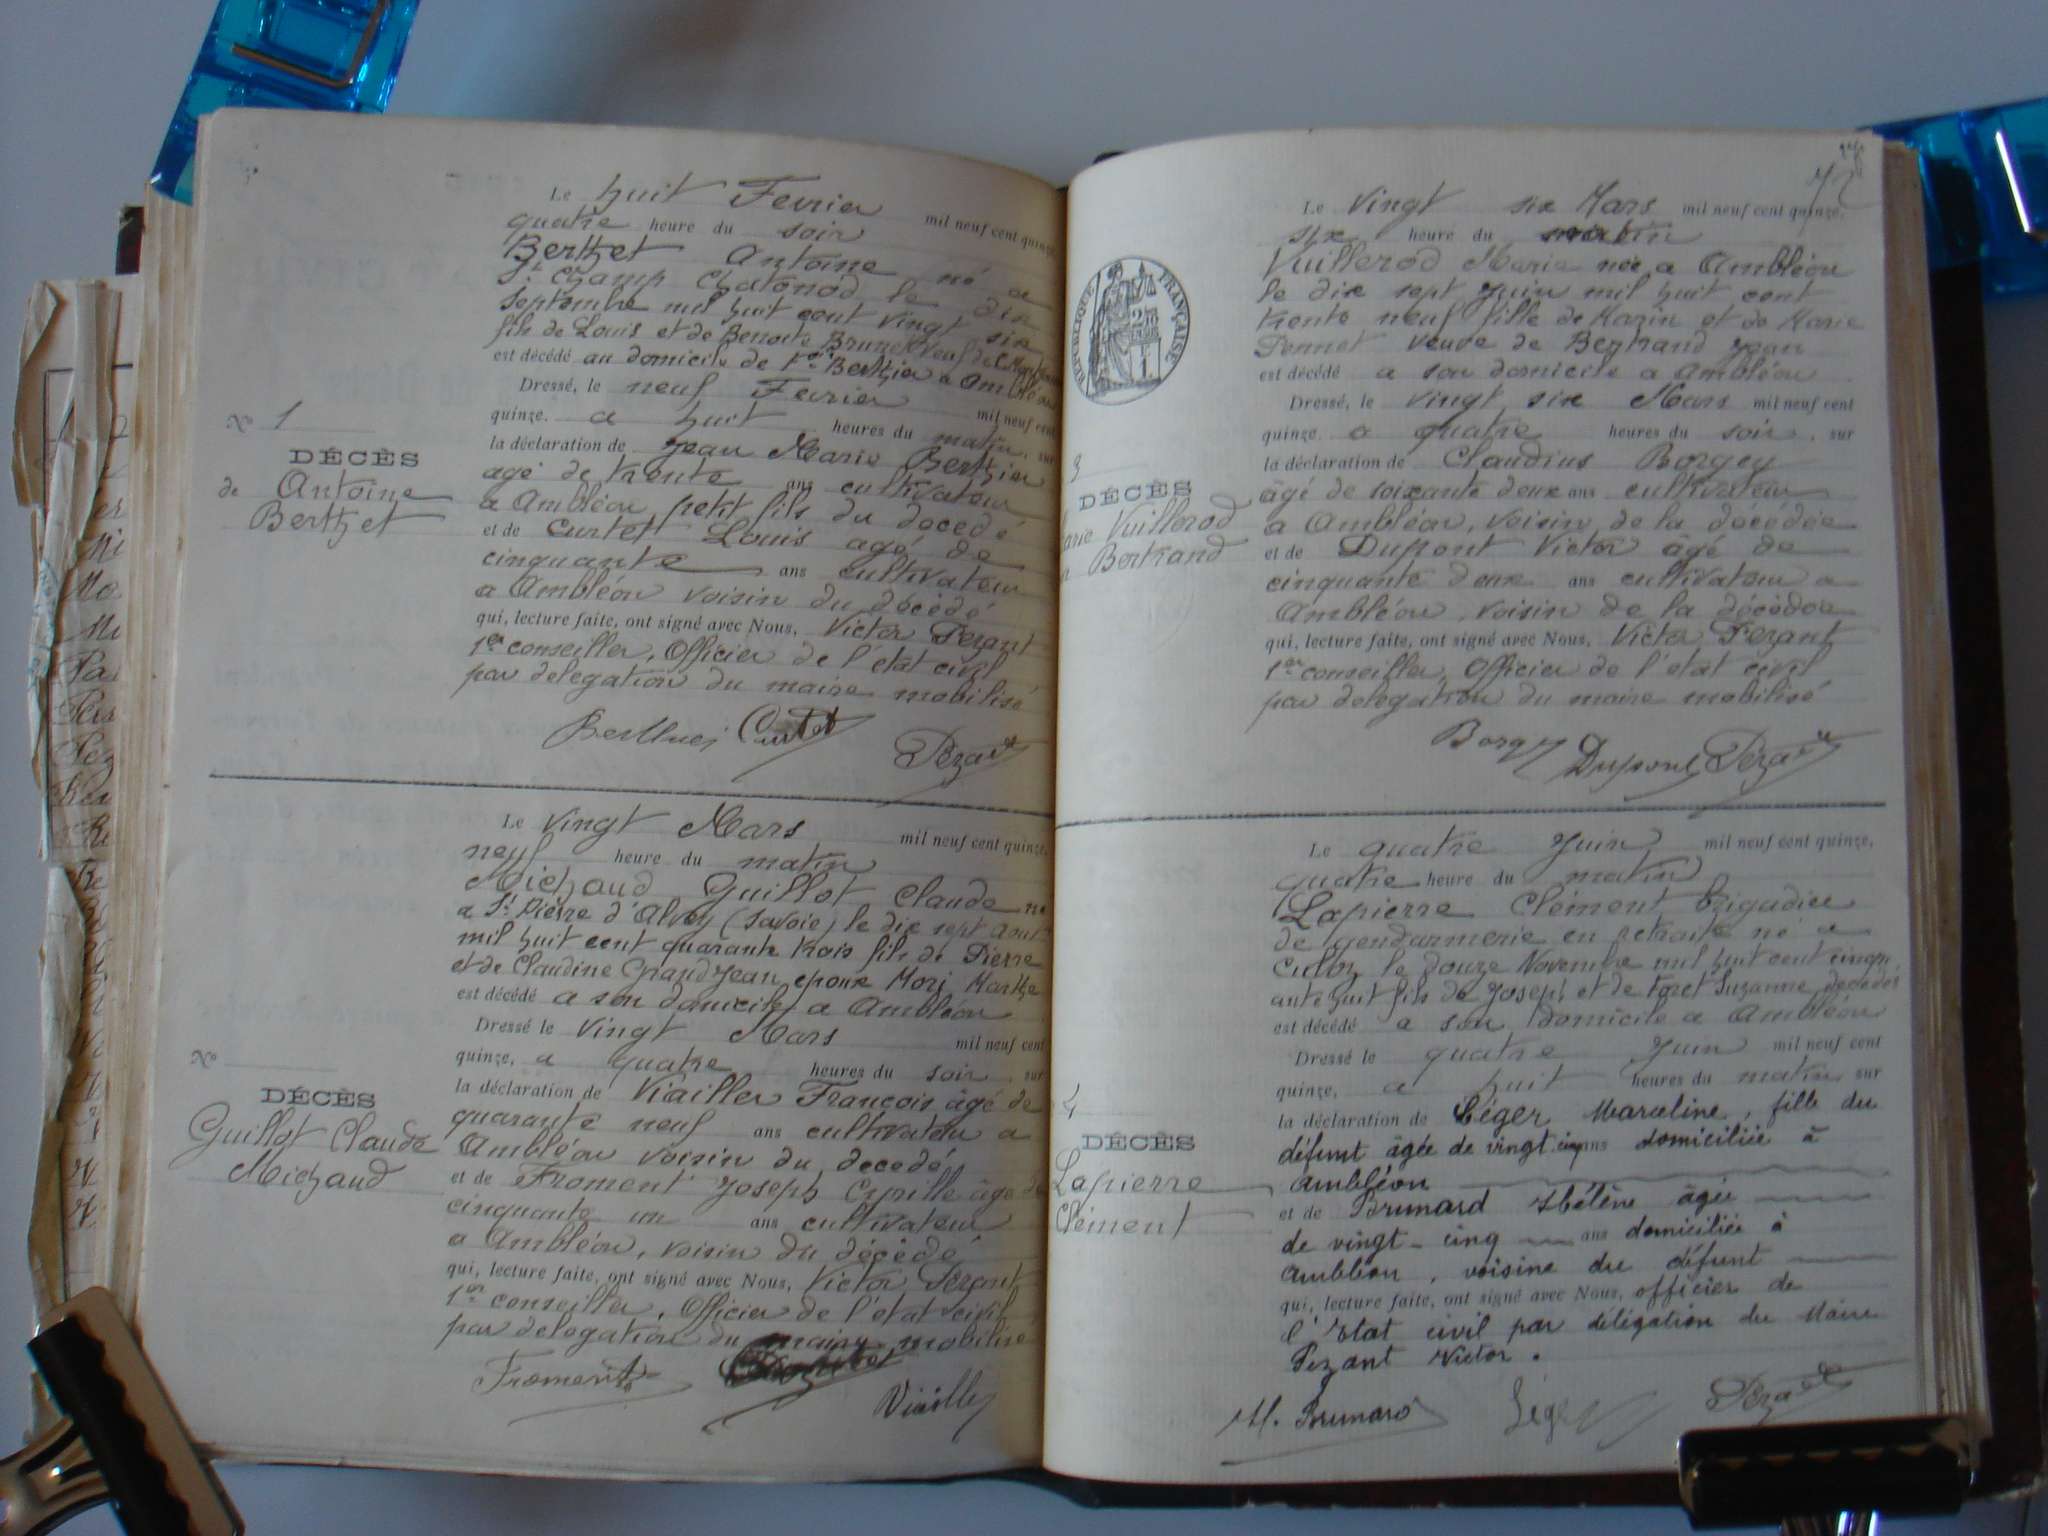 Le huit Fevrier mil neuf cent quinze,
quatre heure du soir
Berthet Antoine né a
St Champ Chatonod le dix
septembre mil huit cent vingt six
fils de Louis et de Benoite Brunet veuf de
est décédé au domicile de Berthier a Ambléon
Dressé, le neuf Fevrier mil neuf cent
quinze, a huit heures du matin, sur
la déclaration de Jean Marie Berthier
agé de trente ans cultivateur
a Ambléon, petit fils du decedé
et de Curtet Louis agé de
cinquante ans cultivateur
a Ambléon voisin du décédé
qui, lecture faite, ont signé avec Nous, Victor Pezant
1er conseiller, Officier de l'etat civil
par delegation du maire mobilisé
Curtet
Pezant
No 1
DÉCÈS
de Antoine
Berthet
Le vingt Mars mil neuf cent quinze,
neuf heure du matin
Michaud Guillot Claude né
a St Pierre d'Alvey (Savoie) le dix sept Aout
mil huit cent quarante trois fils de Pierre
et de Claudine Grandjean, epoux Mori Marthe
est décédé a son domicile a Ambléon
Dressé le vingt Mars mil neuf cent
quinze, a quatre heures du soir, sur
la déclaration de Viailler François âgé de
quarante neuf ans cultivateur a
Ambléon voisin du decedé
et de Froment Joseph Cyrille âgé de
cinquante un ans cultivateur
a Ambléon, voisin du décédé
qui, lecture faite, ont signé avec Nous, Victor Pezant
1er conseiller, Officier de l'etat civil
par delegation du maire mobilisé
Froment
No
DÉCÈS
Guillot Claude
Michaud
Le vingt six Mars mil neuf cent quinze,
six heure du matin
Vuillerod Marie née a Ambléon
le dix sept Juin mil huit cent
trente neuf fille de Marin et de Marie
Pennet veuve de Bertrand Jean
est décédé a son domicile a Ambléon
Dressé, le vingt six Mars mil neuf cent
quinze, a quatre heures du soir, sur
la déclaration de Claudius Borgey
âgé de soixante deux ans cultivateur
a Ambléon, voisin de la décédée
et de Dupont Victor âgé de
cinquante deux ans cultivateur a
Ambléon, voisin de la décédée
qui, lecture faite, ont signé avec Nous, Victor Pezant
1er conseiller, Officier de l'etat civil
par delegation du maire mobilisé
Borgey Dupont Pezant
RÉPUBLIQUE FRANÇAISE
3
DÉCÈS
Marie Vuillerod
Bertrand
Le quatre Juin mil neuf cent quinze,
quatre heure du matin
Lapierre Clément brigadier
de gendarmerie en retraite né a
Culoz le douze Novembre mil huit cent cinqu
ante huit fils de Joseph et de Foret Suzanne décédés
est décédé a son domicile a Ambléon
Dressé le quatre Juin mil neuf cent
quinze, a huit heures du matin sur
la déclaration de Léger Marceline, fille du
défunt âgée de vingt cinq ans domiciliée à
Ambléon
et de Brunard Hélène âgée
de vingt-cinq ans domiciliée à
Ambléon, voisine du défunt
qui, lecture faite, ont signé avec Nous, officier de
l'Etat civil par délégation du Maire
Pezant Victor.
Brunard Léger Pezant
4
DÉCÈS
Lapierre
Clément